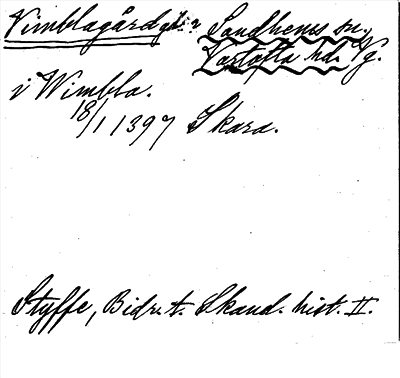 Vimblagård Sandhems sn.
Vartofta hd. Vg.
i Wimbla.
18/1 1397 Skara.
Styffe, Bidr. t. Skand. hist. II.